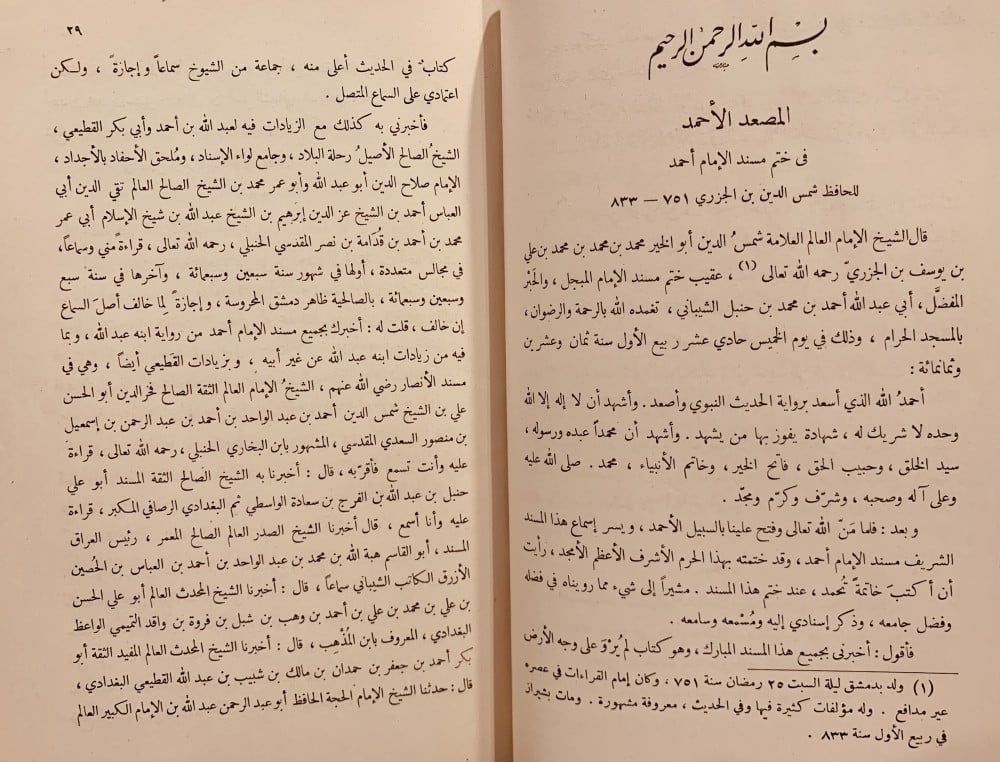 بسم الله الرحمن الرحيم
المصعد الأحمد
فى ختم مسند الإمام أحمد
للحافظ شمس الدين بن الجزري ٧٥١ — ٨٣٣
قال الشيخ الإمام العالم العلامة شمسُ الدين أبو الخير محمد بن محمد بن محمد بن علي
بن يوسف بن الجزريّ رحمه الله تعالى (١) ، عقيب ختم مسند الإمام المبجل ، والحَبْر
المفضَّل ، أبي عبد الله أحمد بن محمد بن حنبل الشيباني ، تغمده الله بالرحمة والرضوان ،
بالمسجد الحرام ، وذلك في يوم الخميس حادي عشر ربيع الأول سنة ثمان وعشرين
وثمانمائة :
أحمدُ الله الذي أسعد برواية الحديث النبوي وأصعد . وأشهد أن لا إله إلا الله
وحده لا شريك له ، شهادة يفوز بها من يشهد . وأشهد أن محمداً عبده ورسوله ،
سيد الخلق ، وحبيب الحق ، فاتح الخير ، وخاتم الأنبياء ، محمد . صلى الله عليه
وعلى آله وصحبه ، وشرّف وكرّم ومجّد .
و بعد : فلما مَنّ الله تعالى وفتح علينا بالسبيل الأحمد ، و يسر إسماع هذا المسند
الشريف مسند الإمام أحمد ، وقد ختمته بهذا الحرم الأشرف الأعظم الأمجد ، رأيت
أن أكتبَ خاتمةً تُحمد ، عند ختم هذا المسند . مشيراً إلى شيء مما رويناه في فضله
وفضل جامعه ، وذكر إسنادي إليه ومُسْمعه وسامعه .
فأقول : أخبرنى بجميع هذا المسند المبارك ، وهو كتاب لم يُرْوَ على وجه الأرض
(١) ولد بدمشق ليلة السبت ٢٥ رمضان سنة ٧٥١ ، وكان إمام القراءات في عصره
غير مدافع . وله مؤلفات كثيرة فيها وفي الحديث ، معروفة مشهورة . ومات بشيراز
في ربيع الأول سنة ٨٣٣ .
٢٩
كتابٌ في الحديث أعلى منه ، جماعة من الشيوخ سماعاً وإجازةً ، ولكن
اعتمادي على السماع المتصل .
فأخبرني به كذلك مع الزيادات فيه لعبد الله بن أحمد وأبي بكر القطيعي ،
الشيخُ الصالح الأصيلُ رحلة البلاد ، وجامع لواء الإسناد ، ومُلحق الأحفاد بالأجداد ،
الإمام صلاح الدين أبو عبد الله وأبو عمر محمد بن الشيخ الصالح العالم تقي الدين أبي
العباس أحمد بن الشيخ عز الدين إبرهيم بن الشيخ عبد الله بن شيخ الإسلام أبي عمر
محمد بن أحمد بن قُدَامة بن نصر المقدسي الحنبلي ، رحمه الله تعالى ، قراءةً مني وسماعاً،
في مجالس متعددة ، أولها في شهور سنة سبعين وسبعمائة ، وآخرها في سنة سبع
وسبعين وسبعمائة ، بالصالحية ظاهر دمشق المحروسة ، وإجازةً لِما خالف أصلَ السماع
إن خالف ، قلت له : أخبرك بجميع مسند الإمام أحمد من رواية ابنه عبد الله ، وبما
فيه من زيادات ابنه عبد الله عن غير أبيه ، وبزيادات القطيعي أيضاً ، وهي في
مسند الأنصار رضي الله عنهم ، الشيخُ الإمام العالم الثقة الصالح فخر الدين أبو الحسن
علي بن الشيخ شمس الدين أحمد بن عبد الواحد بن أحمد بن عبد الرحمن بن إسمعيل
بن منصور السعدي المقدسي ، المشهور بابن البخاري الحنبلي ، رحمه الله تعالى ، قراءة
عليه وأنت تسمع فأقرّ به ، قال : أخبرنا به الشيخ الصالح الثقة المسند أبو علي
حنبل بن عبد الله بن الفرج بن سعادة الواسطي ثم البغدادي الرصافي المكبر ، قراءة
عليه وأنا أسمع ، قال أخبرنا الشيخ الصدر العالم الصالح المعمر ، رئيس العراق
المسند ، أبو القاسم هبة الله بن محمد بن عبد الواحد بن أحمد بن العباس بن الحُصين
الأزرق الكاتب الشيباني سماعاً ، قال : أخبرنا الشيخ المحدث العالم أبو علي الحسن
بن علي بن محمد بن علي بن أحمد بن وهب بن شبل بن فروة بن واقد التميمي الواعظ
البغدادي ، المعروف بابن المُذْهِب ، قال : أخبرنا الشيخ المحدث العالم المفيد الثقة أبو
بكر أحمد بن جعفر بن حمدان بن مالك بن شبيب بن عبد الله القطيعي البغدادي ،
قال : حدثنا الشيخ الإمام الحجة الحافظ أبو عبد الرحمن عبد الله بن الإمام الكبير العالم